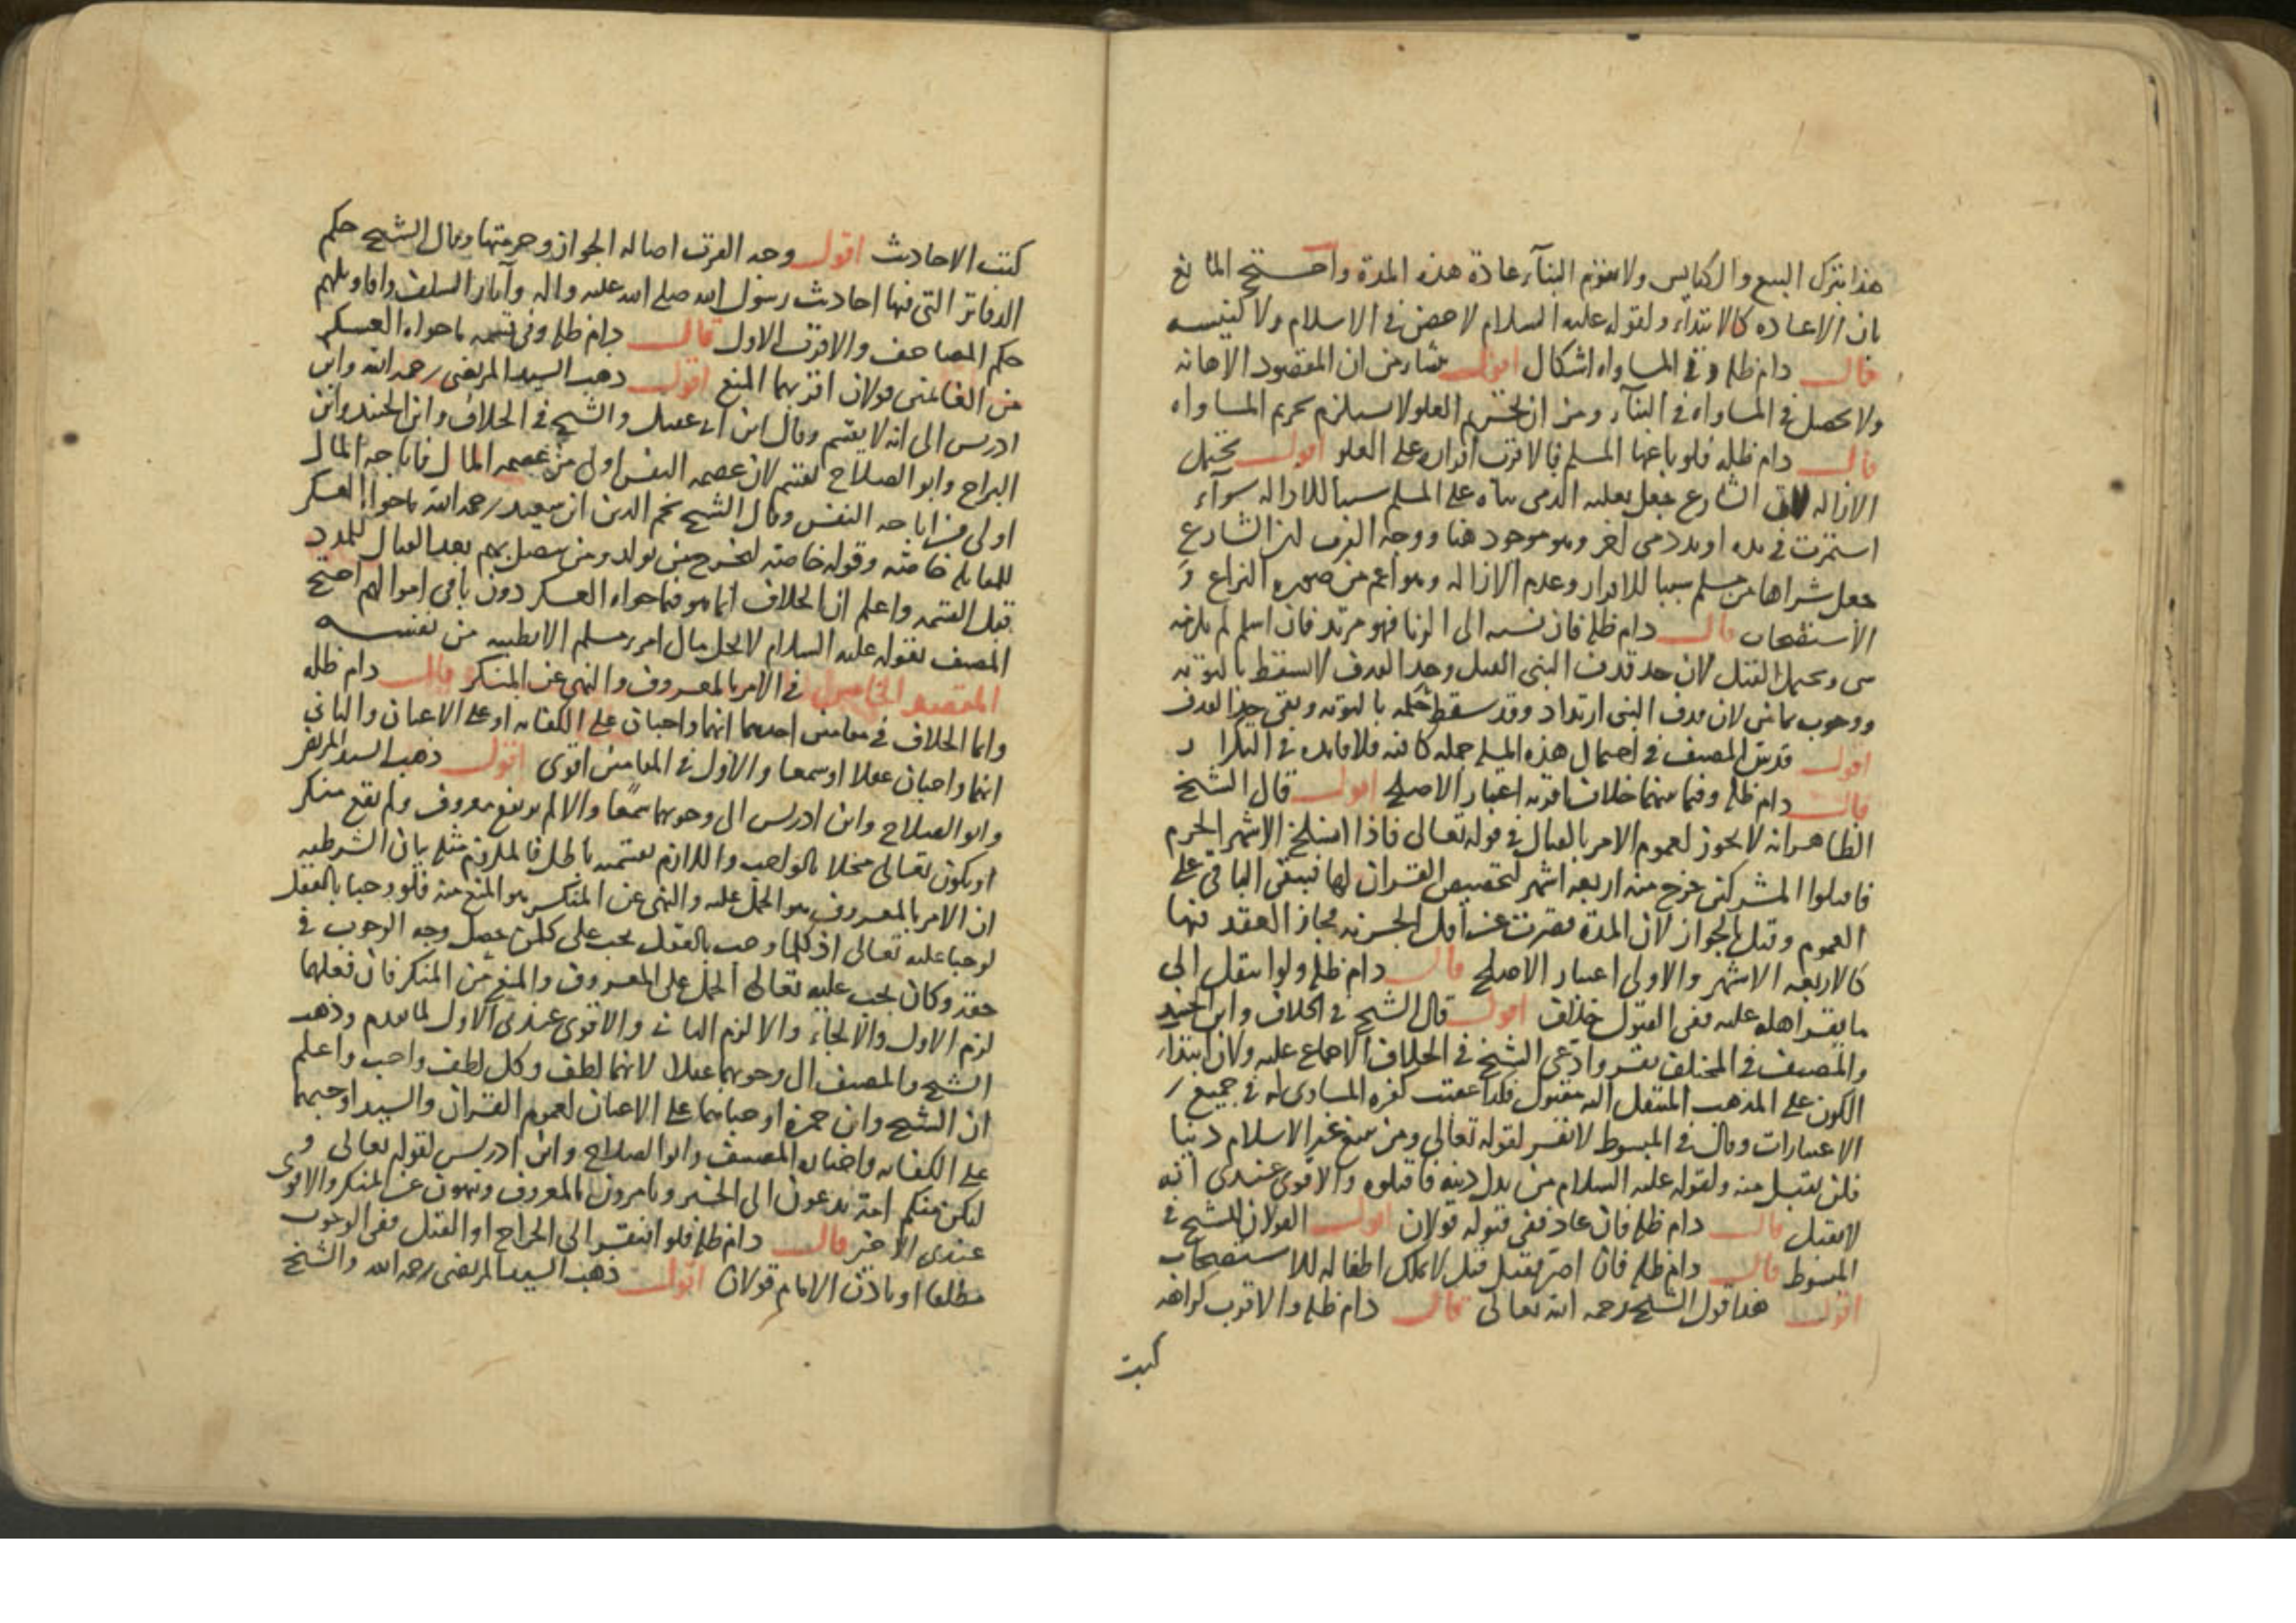 هذا بترك البيع والكنايس ولا يقوم البنآء عادة هذه المدة واحتج المانع
بان الاعاده كالابتداء ولقوله عليه السلام لا خصى في الاسلام ولا كنيسه
قال دام ظله وفي المساواه اشكال اقول ينشا من ان المقصود الاهانه
ولا يحصل في المساواه في البنآء ومن ان تحريم العلو لا يستلزم تحريم المساواه
قال دام ظله فلو باعها المسلم فالاقرب اقراره على العلو اقول يحتمل
الازاله لان الشارع جعل تعليه الدمى بناه على المسلم سببا للازاله سوآء
استمرت في يده او يد ذمى آخر وهو موجود هنا ووجه القرب ان الشارع
جعل شراها من مسلم سببا للاقرار وعدم الازاله وهو اعم من صوره النزاع و
الاستصحاب قال دام ظله فان نسبه الى الزنا فهو مرتد فان اسلم لم يلزمه
شى ويحتمل القتل لان حد قدف النبى القتل وحد القدف لا يسقط بالتوبه
ووجوب ثمانين لان قدف النبى ارتداد وقد سقط حكمه بالتوبه وبقى حد القدف
اقول قد بين المصنف في احتمال هذه المسله جمله كافيه فلا فايده في التكرار
قال دام ظله وفيما بينهما خلاف اقربه اعتبار الاصلح اقول قال الشيخ
الظاهر انه لا يجوز لعموم الامر بالقتال في قوله تعالى فاذا انسلخ الاشهر الحرم
فاقتلوا المشركين خرج منه اربعه اشهر لتخصيص القران لها فيبقى الباقي على
العموم وقيل بالجواز لان المدة قصرت عن اقل الجزيه فجاز العقد فيها
كالاربعه الاشهر والاولى اعتبار الاصلح قال دام ظله ولو انتقل الى
ما يقر اهله عليه ففي القبول خلاف اقول قال الشيخ في الخلاف وابن الجنيد
والمصنف في المختلف يقر وادعى الشيخ في الخلاف الاجماع عليه ولان ابتداء
الكون على المذهب المنتقل اليه مقبول فكذا عقيب كفره المساوى له في جميع
الاعتبارات وقال في المبسوط لا يقر لقوله تعالى ومن يبتغ غير الاسلام دينا
فلن يقبل منه ولقوله عليه السلام من بدل دينه فاقتلوه والاقوى عندى انه
لا يقبل قال دام ظله فان عاد ففى قبوله قولان اقول القولان للشيخ في
المبسوط قال دام ظله فان اصر فقتل قيل لا يملك اطفاله للاستصحاب
اقول هذا قول الشيخ رحمه الله تعالى قال دام ظله والاقرب كراهه
كتب
كتب الاحاديث اقول وجه القرب اصاله الجواز وحرمتها وقال الشيخ حكم
الدفاتر التى فيها احاديث رسول الله صلى الله عليه واله وآثار السلف واقاويلهم
حكم المصاحف والاقرب الاول قال دام ظله وفى قسمه ما حواه العسكر
من الغانمين قولان اقربهما المنع اقول ذهب السيد المرتضى رحمه الله وابن
ادريس الى انه لا يقسم وقال ابن ابى عقيل والشيخ في الخلاف وابن الجنيد وابن
البراج وابو الصلاح يقسم لان عصمه النفس اولى من عصمه المال فاباحه المال
اولى من اباحه النفس وقال الشيخ نجم الدين ابن سعيد رحمه الله ما حواه العسكر
للمقاتله خاصه وقوله خاصه ليخرج من يولد ومن يتصل بهم بعد القتال للمدد
قبل القسمه واعلم ان الخلاف انما هو فيما حواه العسكر دون باقى اموالهم احتج
المصنف بقوله عليه السلام لا يحل مال امرء مسلم الا بطيبه من نفسه
المقصد الخامس في الامر بالمعروف والنهى عن المنكر قال دام ظله
وانما الخلاف في مقامين احدهما انهما واجبان على الكفايه او على الاعيان والثانى
انهما واجبان عقلا او سمعا والاول في المقامين اقوى اقول ذهب السيد المرتضى
وابو الصلاح وابن ادريس الى وجوبهما سمعا والا لم يرتفع معروف ولم يقع منكر
او يكون تعالى مخلا بالواجب واللازم بقسميه باطل فالملزوم مثله بيان الشرطيه
ان الامر بالمعروف هو الحمل عليه والنهى عن المنكر هو المنع منه فلو وجبا بالعقل
لوجبا عليه تعالى اذ كلما وجب بالعقل يجب على كل من حصل وجه الوجوب في
حقه وكان يجب عليه تعالى الحمل على المعروف والمنع من المنكر فان فعلهما
لزم الاول والالجاء والا لزم الثانى والاقوى عندى الاول لما تقدم وذهب
الشيخ والمصنف الى وجوبهما عقلا لانهما لطف وكل لطف واجب واعلم
ان الشيخ وابن حمزه اوجباهما على الاعيان لعموم القران والسيد اوجبهما
على الكفايه واختاره المصنف وابو الصلاح وابن ادريس لقوله تعالى و
لتكن منكم امة يدعون الى الخير ويامرون بالمعروف وينهون عن المنكر والاقوى
عندى الاخير قال دام ظله فلو افتقر الى الجراح او القتل ففى الوجوب
مطلقا او باذن الامام قولان اقول ذهب السيد المرتضى رحمه الله والشيخ